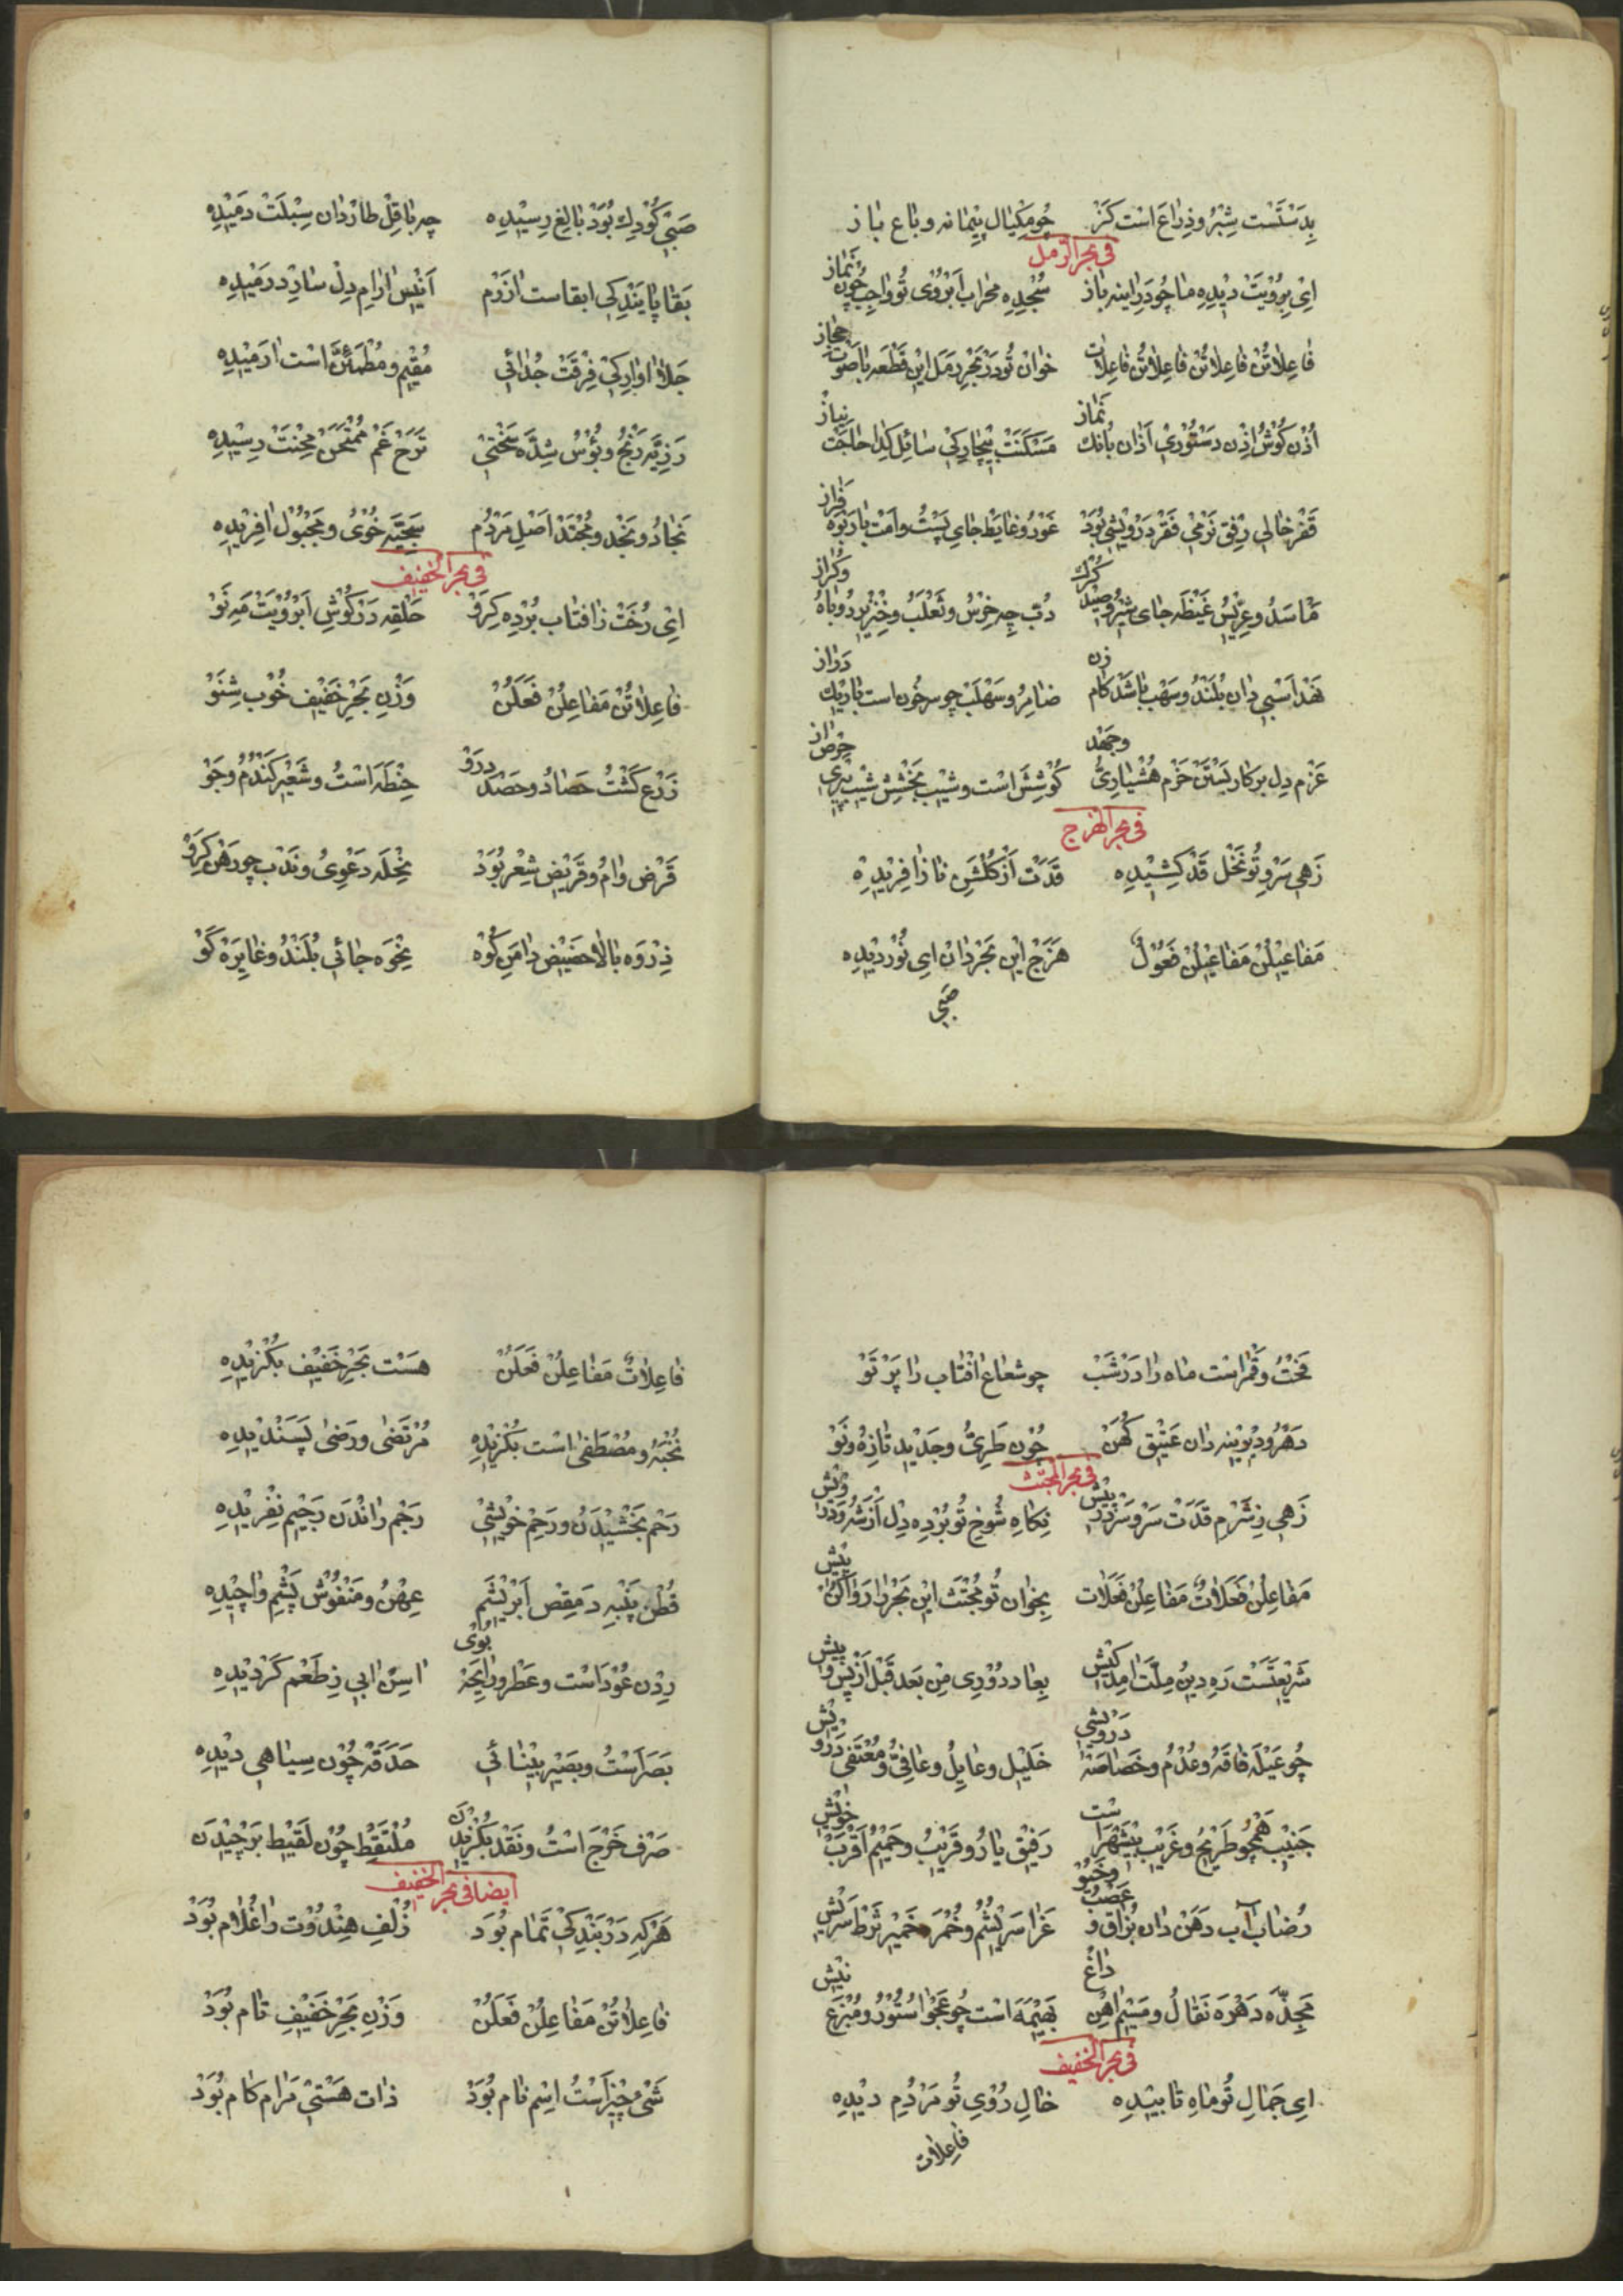 بدستست شبر و ذراع است کز چو مکیال پیمانه و باع باز
فی بحر الرمل
ای برویت دیده ما چو در اینه باز سجده محراب ابروی تو واجب چون نماز
فاعلاتن فاعلاتن فاعلاتن فاعلات خوان تو در بحر رمل این قطعه با صوت حجاز
اذن کوش اذن دستوری اذان بانک نماز مسکنت بیچارکی سائل کدا حاجت نیاز
قفر خالی رفق نرمی فقر درویشی بود غور و غایط جای پست و امت با ربوه فراز
ماسد و عریس غیظه جای شیر و صید کرک دب چه خرس و ثعلب و خنزیر روباه و کراز
نهد اسبی دان بلند و سهب باشد کام زن ضامر و سهلب چو سرخون است باریک دراز
عزم دل بر کار بستن حزم هشیاری و جهد کوشش است و شیب بخشش شیب پیری حرص از
فی بحر الهزج
زهی سرو تو نخل قد کشیده قدت از کلشن ناز افریده
مفاعیلن مفاعیلن فعول هزج این بحر دان ای نور دیده
صبی
صبی کودک بود بالغ رسیده چه باقل طارد ان سبلت دمیده
بقا پایندکی ابقاست ازرم انیس ارام دل سارد رمیده
جلا اوارکی فرقت جدائی مقیم و مطمئن است ارمیده
رزیه رنج و بؤس شده سختی ترح غم ممتحن محنت رسیده
نجاد و نجد و محتد اصل مردم سجیه خوی و مجبول افریده
فی بحر الخفیف
ای رخت ز افتاب برده کرو حلقه در کوش ابرویت مه نو
فاعلاتن مفاعلن فعلن وزن بحر خفیف خوب شنو
زرع کشت حصاد و حصد درو حنطه است و شعیر کندم و جو
قرض وام و قریض شعر بود نحله دعوی و ندب چو رهن کرو
ذروه بالا حضیض دامن کوه نجوه جائی بلند و غایره کو
فخت و قمراست ماه را در شب چو شعاع افتاب را پرتو
دهر و دیوینه دان عتیق کهن چون طری و جدید تازه و نو
فی بحر المجتث
زهی ز شرم قدت سرو سر در پیش نکاه شوخ تو برده دل از شه و درویش
مفاعلن فعلات مفاعلن فعلات بخوان تو مجتث این بحر را روا کن پیش
شریعتست ره دین ملت امت کیش بعاد دوری من بعد قبل از پس و پیش
چو عیله فاقه و عدم و خصاصه درویشی خلیل و عایل و عافی و معتفی درویش
جنیب همچو طریح و غریب بیشهراست رفیق یار و قریب و حمیم اقرب خویش
رضاب آب دهن دان بزاق و عصب و خیو غرا سریشم و خمره خمیر ثرط سریش
مجذه دهره نقال و میسم اهن داغ بهیمه است چو عجوا ستور و مبزغ نیش
فی بحر الخفیف
ای جمال تو ماه تابیده خال روی تو مردم دیده
فاعلات
فاعلات مفاعلن فعلن هست بحر خفیف بکزیده
نخبه و مصطفی است بکزیده مرتضی و رضی پسندیده
رحم بخشیدن و رحم خویشی رجم راندن رجیم نفریده
قطن پنبه دمقص ابریشم عهن و منفوش پشم واچیده
ردن عود است و عطر و رایحه بوی اسن ابی ز طعم کردیده
بصرست و بصیر بینائی حدقه چون سیاهی دیده
صرف خرج است و نقد بکزیدن ملتقط چون لقیط برچیدن
ایضا فی بحر الخفیف
هرکه در بندکی تمام بود زلف هندوت را غلام بود
فاعلاتن مفاعلن فعلن وزن بحر خفیف تام بود
شئ چیز است اسم نام بود ذات هستی مرام کام بود